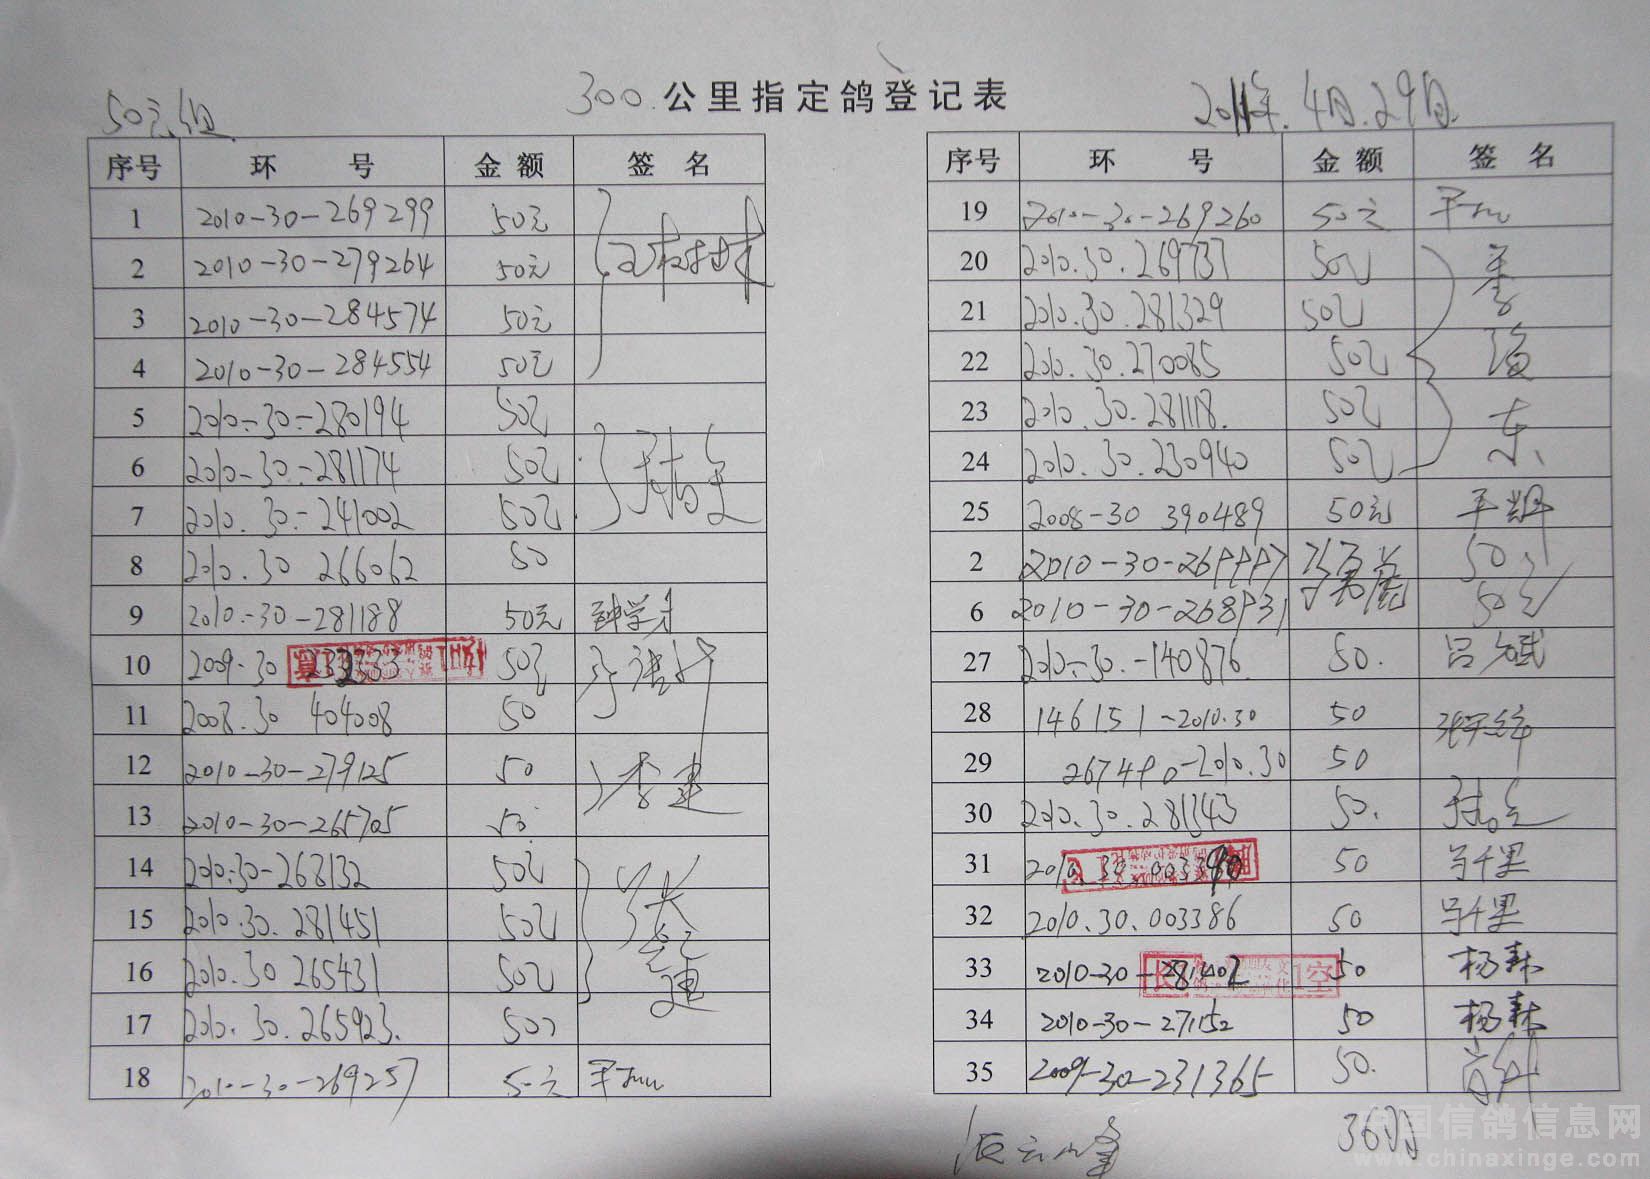 50元组
300 公里指定鸽登记表
2011年.4月.29日.
序号 环 号 金 额 签 名
1 2010-30-269299 50元
2 2010-30-279264 50元
3 2010-30-284574 50元
4 2010-30-284554 50元
5 2010-30-280194 50元
6 2010-30-281174 50元
7 2010.30-241002 50元
8 2010.30 266062 50
9 2010-30-281188 50元
10 2009-30 50元
11 2008.30 404008 50
12 2010-30-279125 50 李建
13 2010-30-265705 50
14 2010-30-268132 50元
15 2010.30.281451 50元 张
16 2010.30 265431 50元 建
17 2010.30.265923. 50元
18 2010-30-269257 50元
序号 环 号 金 额 签 名
19 2010-30-269260 50元
20 2010.30.269737 50元 李
21 2010.30.281329 50元
22 2010.30.270085 50元 海
23 2010.30.281118. 50元 东
24 2010.30.230940 50元
25 2008-30 390489 50元 平辉
2 2010-30-269997 50元
6 2010-30-268931 50元
27 2010-30-140876 50. 吕斌
28 146151-2010.30 50
29 267490-2010.30 50
30 2010.30.281343 50.
31 2010.30.003390 50 马千里
32 2010.30.003386 50 马千里
33 2010-30-281402 50 杨森
34 2010-30-271152 50 杨森
35 2009-30-231365 50.
36羽
中国信鸽信息网
www.chinaxinge.com